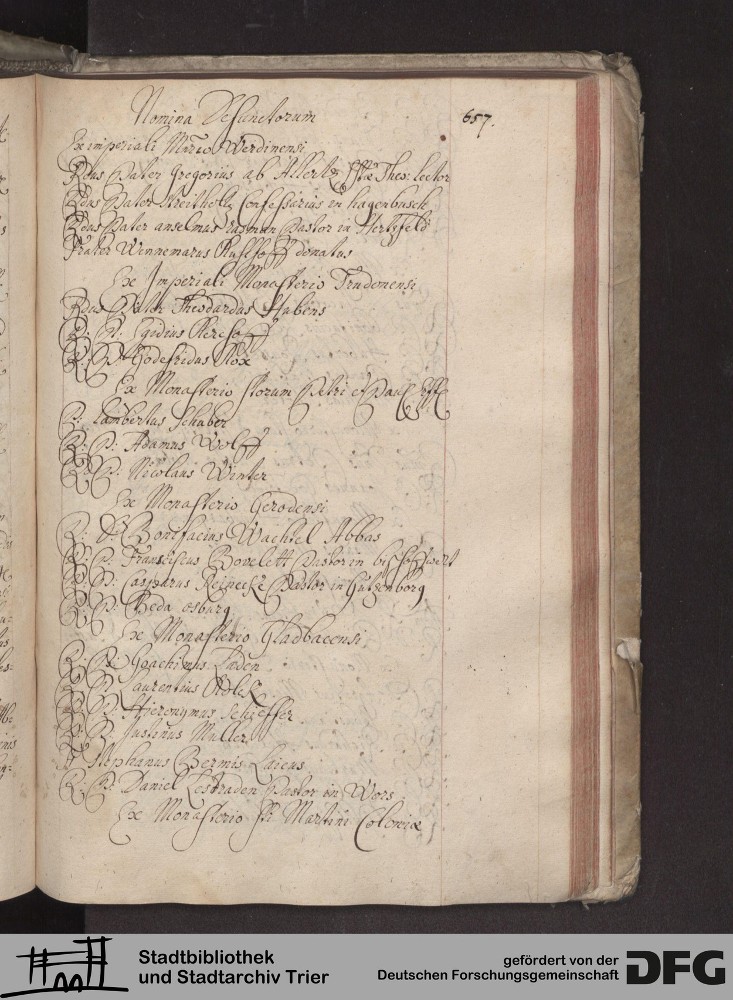 Nomina Defunctorum
657.
Ex imperiali Mnrio Werdinensi
Rdus Pater Gregorius ab Allertz SStæ Theo: lector
Rdus Pater Confessarius in hagenbusch
Rdus Pater anselmus Pastor in Hertzfeld
Frater Wennemarus Ruhlhoff donatus
Ex Imperiali Monasterio Trudonensi
Rdus Pater Theodardus Stabens
R: P: Egidius
R: P: Godefridus Nox
Ex Monasterio Storum Petri et Pauli Erff
P: Lambertus Schaber
R: P: Adamus Wolff
R: P: Nicolaus Winter
Ex Monasterio Gerodensi
R: D: Bonifacius Wachtel Abbas
R: P: Franciscus Bovelett Pastor in
R: P: Casparus Reinecke Pastor in
R: P: Beda osburg
Ex Monasterio Gladbacensi
R: P: Joachimus Laden
R: P: Laurentius
R: P: Hieronymus Scheffer
R: P: Justinus Muller
F: Stephanus Bermis Laicus
R: P: Daniel Lestraden Pastor in Wers
Ex Monasterio Sti Martini Coloniæ
Stadtbibliothek
und Stadtarchiv Trier
gefördert von der
Deutschen Forschungsgemeinschaft
DFG